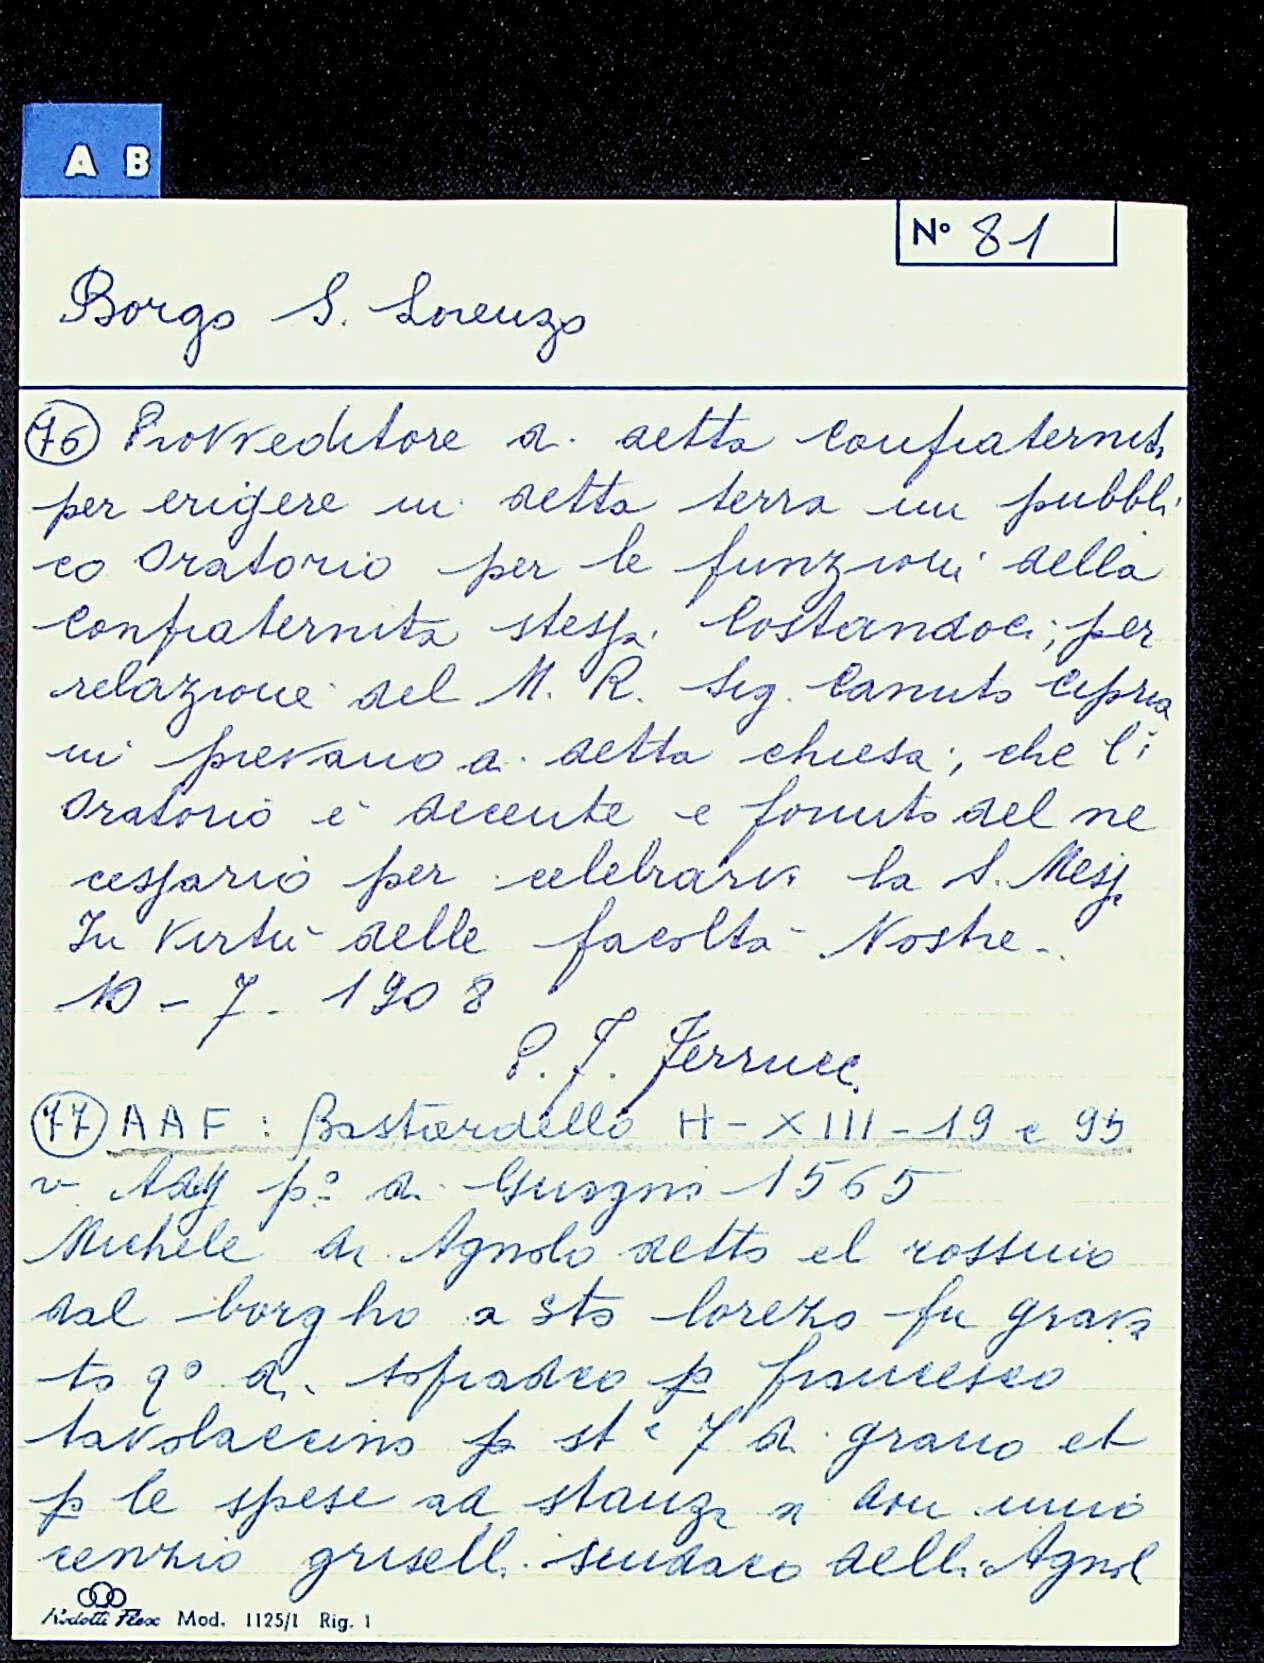 A B
N° 81
Borgo S. Lorenzo
76 Provveditore di detta confraternita
per erigere in detta terra un pubbli
co oratorio per le funzioni della
confraternita stessa. Costandoci, per
relazione del M. R. Sig. Canuto Cipria
ni pievano di detta chiesa, che l'
oratorio è decente e fornito del ne
cessario per celebrarvi la S. Messa
In virtù delle facoltà Nostre -.
10 - 7 - 1908
P. J. Ferrucci
77 AAF : Bastardello H - XIII - 19 c 95
v Ady p° di Giugno 1565
Michele di Agnolo detto el rossino
dal borgho a sto lorezo fu grava
to q° di, sopradco p francesco
tavolaccino p st e 7 di grano et
p le spese ad stanza di don inno
cenzio griselli sindaco delli Agnol
Mod. 1125/1 Rig. 1